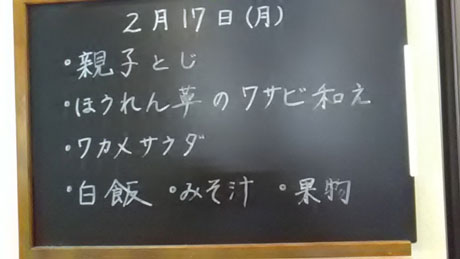 2月17日(月)
・親子とじ
・ほうれん草のワサビ和え
・ワカメサラダ
・白飯 ・みそ汁 ・果物